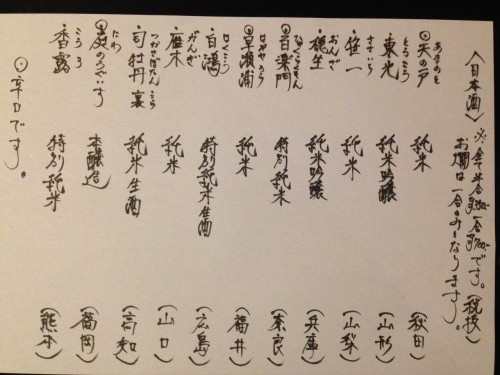 〈日本酒〉 ※全て半合 一合¥700-です。(税抜)
お燗は一合のみとなります。
あまのと
⊙天の戸 純米 (秋田)
とうこう
・東光 純米吟醸 (山形)
ささいち
・笹一 純米 (山梨)
純米吟醸 (兵庫)
ひゃくらくもん
⊙百楽門 特別純米 (奈良)
はやせうら
⊙早瀬浦 純米 (福井)
はくこう
・白鴻 特別純米生酒 (広島)
がんぎ
・雁木 純米 (山口)
つかさぼたん うら
・司牡丹 裏 純米生酒 (高知)
にわ
⊙庭のうぐいす 本醸造 (福岡)
こうろ
・香露 特別純米 (熊本)
⊙辛口です。